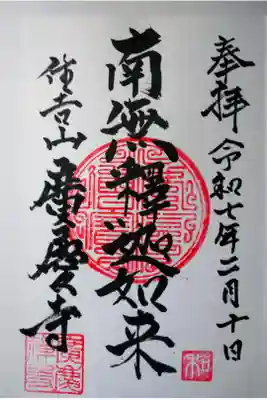 奉拝 令和七年二月十日
南無釋迦如来
住吉山 寺